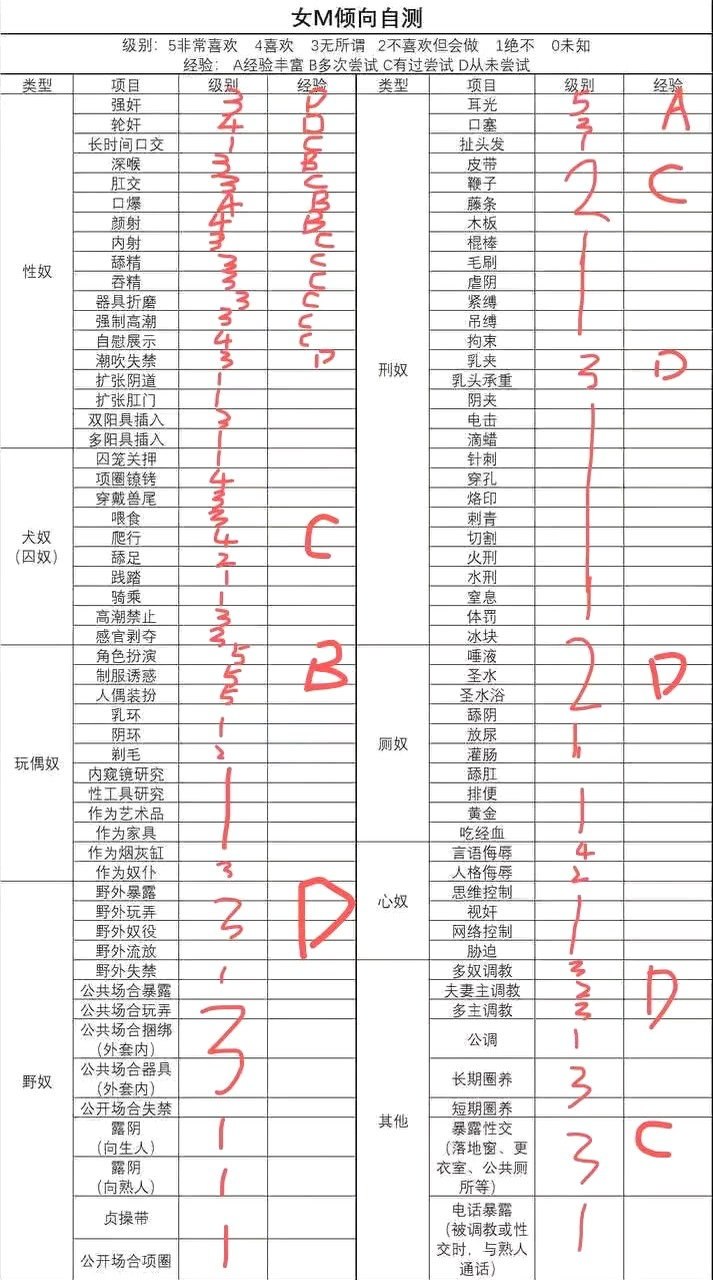 女M倾向自测
级别： 5非常喜欢 4喜欢 3无所谓 2不喜欢但会做 1绝不 0未知
经验： A经验丰富 B多次尝试 C有过尝试 D从未尝试
类型 项目 级别 经验
性奴
强奸 3 D
轮奸 4 D
长时间口交 1 C
深喉 3 B
肛交 3 C
口爆 4 B
颜射 4 B
内射 3 C
舔精 3 C
吞精 3 C
器具折磨 3 C
强制高潮 3 C
自慰展示 4 C
潮吹失禁 3 D
扩张阴道 1
扩张肛门 1
双阳具插入
多阳具插入 1
犬奴
(囚奴)
囚笼关押 1
项圈镣铐 4
穿戴兽尾 3
喂食 3
爬行 4 C
舔足 2
践踏 1
骑乘 1
高潮禁止 3
感官剥夺
玩偶奴
角色扮演 5
制服诱惑 5 B
人偶装扮 5
乳环
阴环 1
剃毛 2
内窥镜研究
性工具研究
作为艺术品 1
作为家具
作为烟灰缸
作为奴仆 3
野奴
野外暴露
野外玩弄 3 D
野外奴役
野外流放
野外失禁 1
公共场合暴露
公共场合玩弄
公共场合捆绑 3
(外套内)
公共场合器具
(外套内)
公开场合失禁
露阴 1
(向生人)
露阴 1
(向熟人)
贞操带
公开场合项圈 1
类型 项目 级别 经验
刑奴
耳光 5 A
口塞 3
扯头发 1
皮带
鞭子 2 C
藤条
木板
棍棒
毛刷
虐阴 1
紧缚
吊缚
拘束
乳夹 3 D
乳头承重
阴夹
电击
滴蜡
针刺
穿孔
烙印 1
刺青
切割
火刑
水刑
窒息
体罚
冰块
厕奴
唾液
圣水 2 D
圣水浴
舔阴
放尿 1
灌肠
舔肛
排便
黄金 1
吃经血
心奴
言语侮辱 4
人格侮辱 2
思维控制
视奸 1
网络控制
胁迫
其他
多奴调教 3
夫妻主调教 2 D
多主调教
公调 1
长期圈养 3
短期圈养
暴露性交 C
(落地窗、更 3
衣室、公共厕
所等)
电话暴露
(被调教或性 1
交时，与熟人
通话)